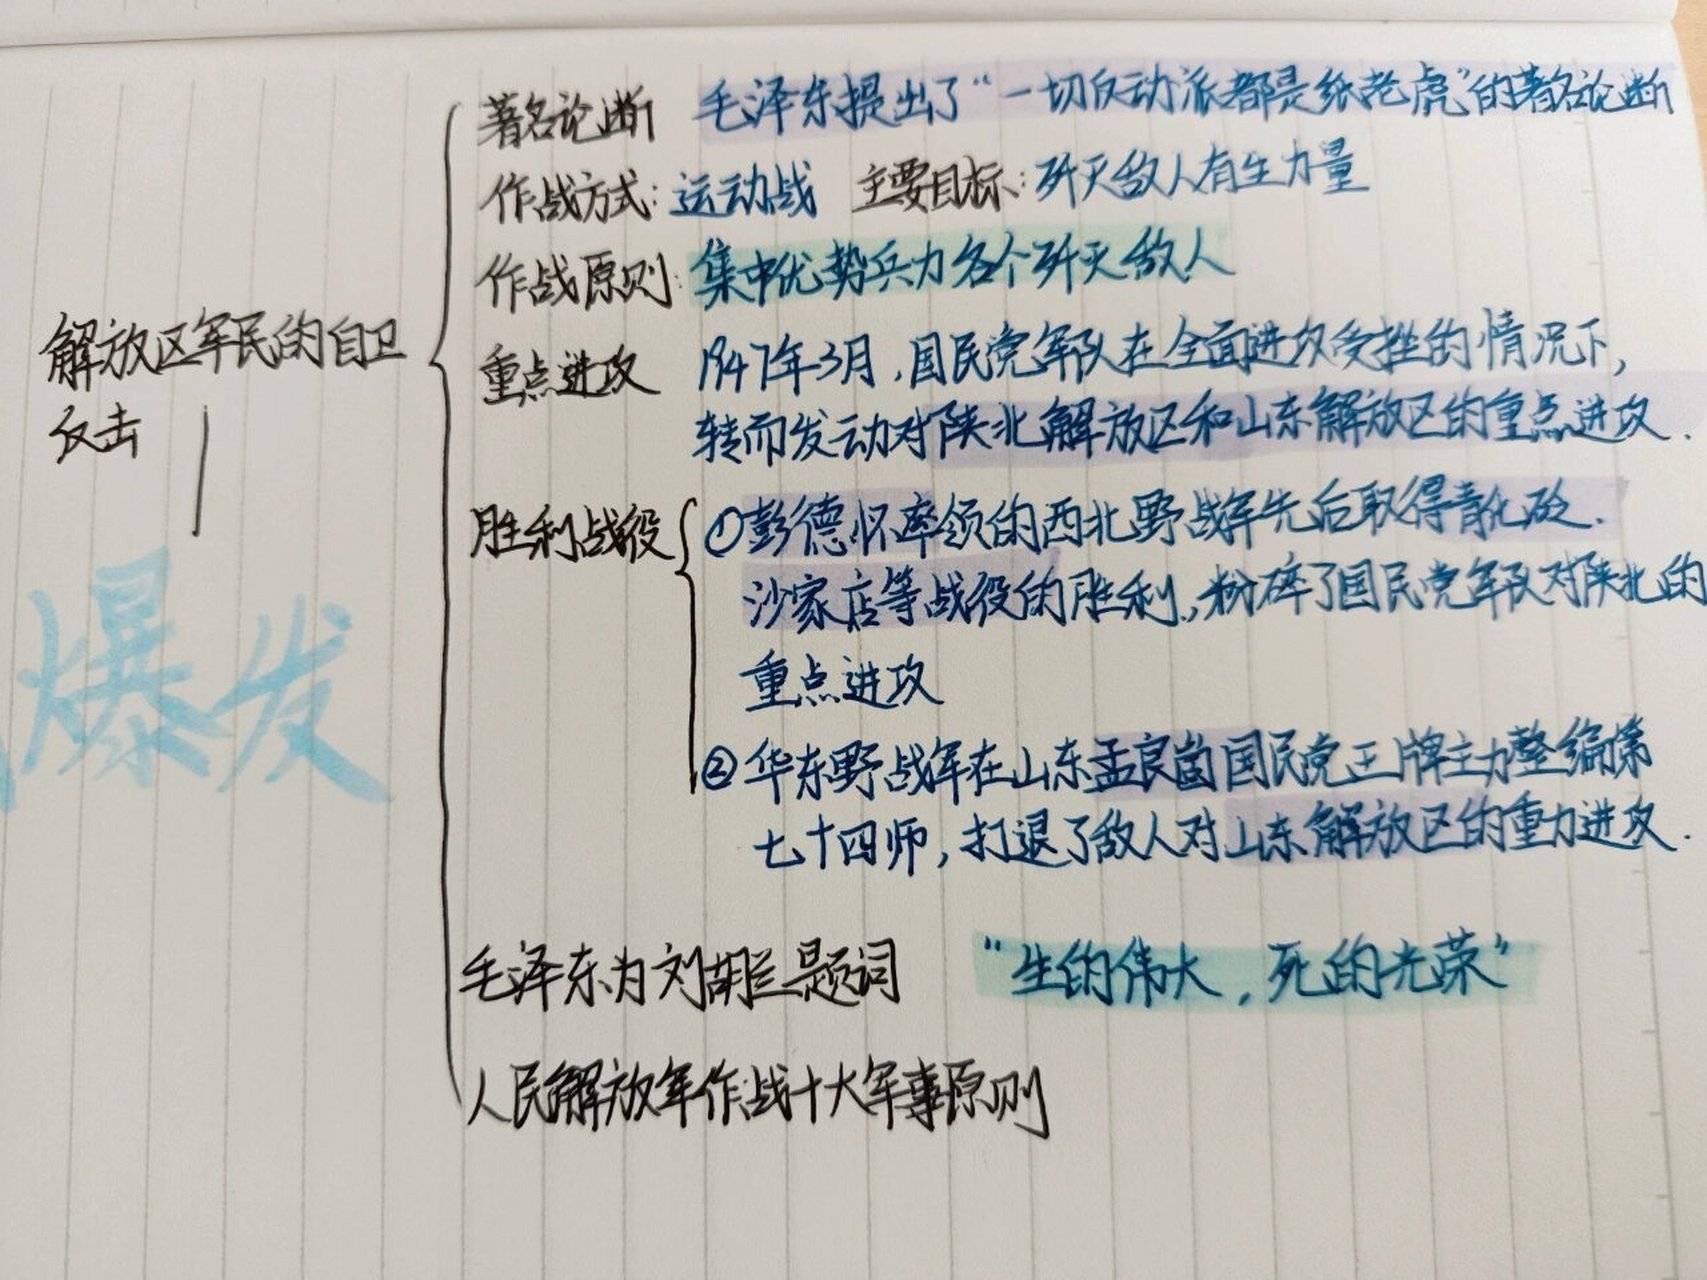 著名论断 毛泽东提出了“一切反动派都是纸老虎”的著名论断
作战方式：运动战 主要目标：歼灭敌人有生力量
作战原则：集中优势兵力各个歼灭敌人
解放区军民的自卫
反击
重点进攻 1947年3月，国民党军队在全面进攻受挫的情况下，
转而发动对陕北解放区和山东解放区的重点进攻.
胜利战役 ①彭德怀率领的西北野战军先后取得青化砭.
沙家店等战役的胜利，粉碎了国民党军队对陕北的
重点进攻
②华东野战军在山东孟良崮国民党王牌主力整编第
七十四师，打退了敌人对山东解放区的重力进攻.
爆发
毛泽东为刘胡兰题词 “生的伟大，死的光荣”
人民解放军作战十大军事原则